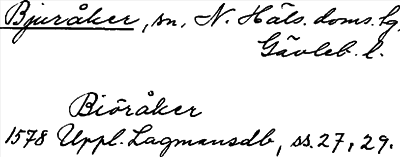 Bjuråker, sn, N. Häls. doms. lg.
Gävleb. l.
Biöråker
1578 Uppl. Lagmansdb, ss. 27, 29.